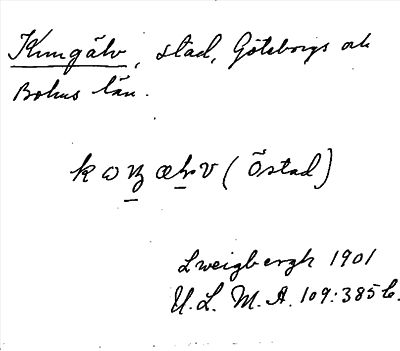 Kungälv, stad, Göteborgs och
Bohus län.
(Östad)
Lweigbergk 1901
U.L.M.A. 109:385 b.